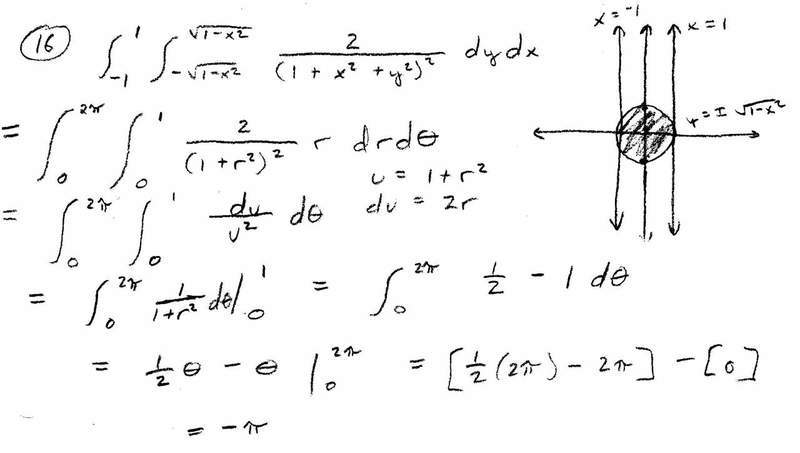 16 ∫_{-1}^{1} ∫_{-√(1-x²)}^{√(1-x²)} 2/(1 + x² + y²)² dy dx
x = -1
x = 1
y = ± √(1-x²)
= ∫_0^{2π} ∫_0^1 2/(1 + r²)² r dr dθ
u = 1 + r²
= ∫_0^{2π} ∫_0^1 du/u² dθ du = 2r
= ∫_0^{2π} 1/(1+r²) dθ |_0^1 = ∫_0^{2π} 1/2 - 1 dθ
= 1/2 θ - θ |_0^{2π} = [1/2 (2π) - 2π] - [0]
= -π